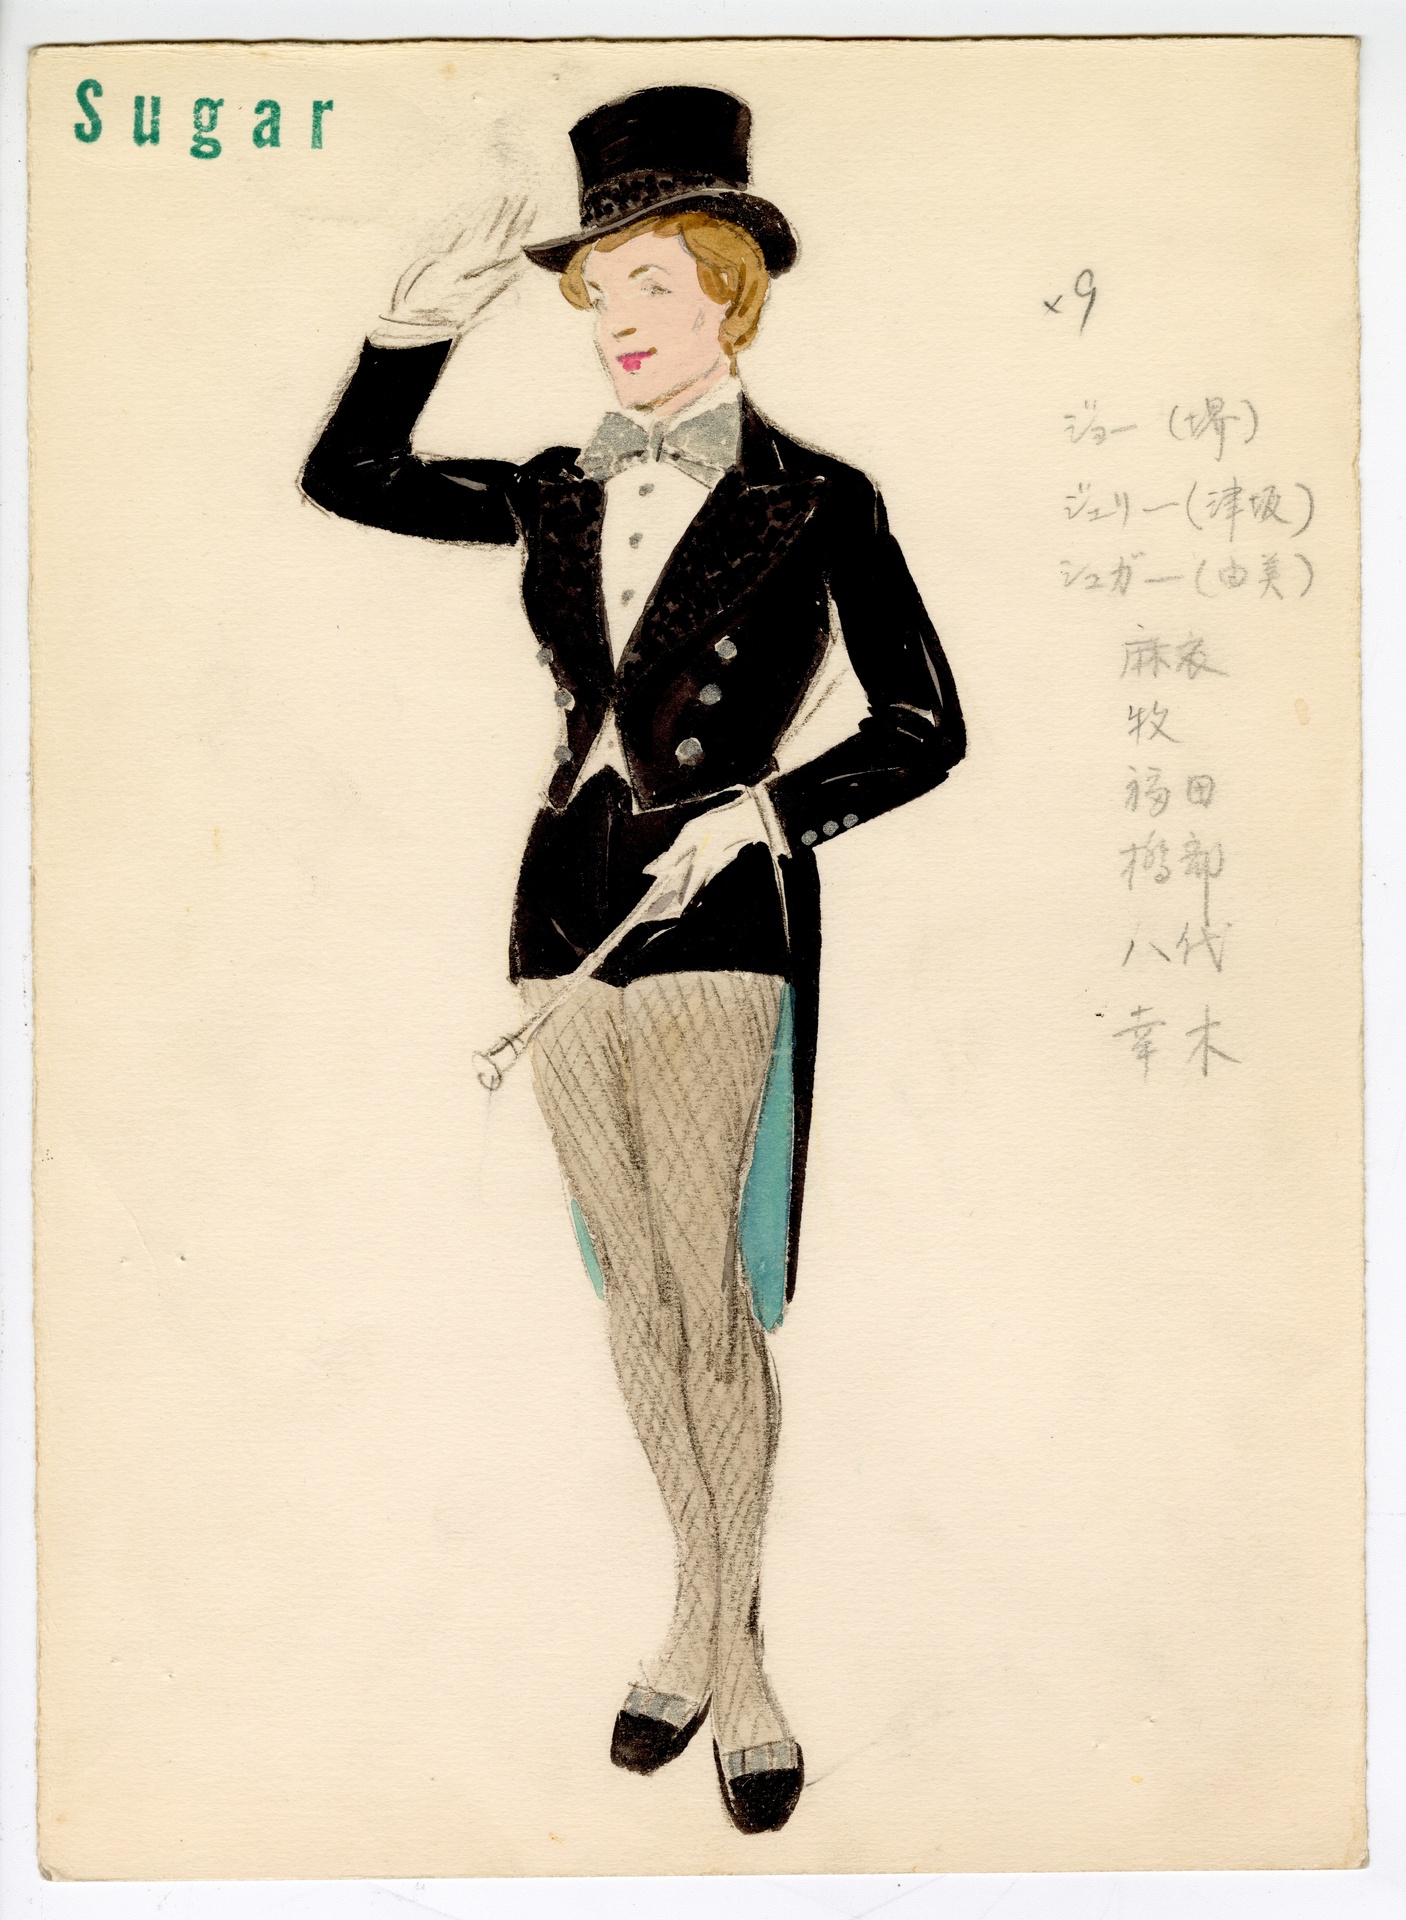 Sugar
×9
ジョー(堺)
ジェリー(津坂)
シュガー(由美)
麻衣
牧
福田
橋部
八代
幸木